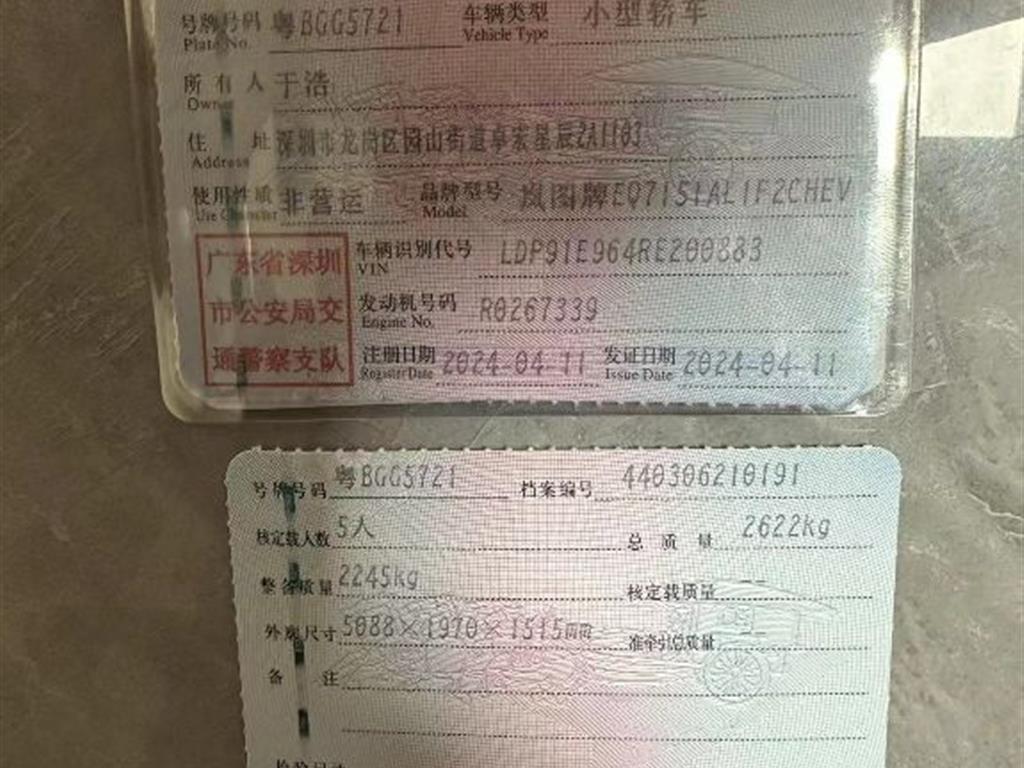 号牌号码 粤BGG5721 车辆类型 小型轿车
Plate No. Vehicle Type
所有人 于浩
Owner
住址 深圳市龙岗区园山街道卓宏星辰2A1103
Address
使用性质 非营运 品牌型号 岚图牌EQ7151AL1F2CHEV
Use Character Model
广东省深圳
市公安局交
通警察支队
车辆识别代号 LDP91E964RE200883
VIN
发动机号码 R0267339
Engine No.
注册日期 2024-04-11 发证日期 2024-04-11
Register Date Issue Date
号牌号码 粤BGG5721 档案编号 440306210191
核定载人数 5人 总质量 2622kg
整备质量 2245kg 核定载质量 --
外廓尺寸 5088×1970×1515mm 准牵引总质量 --
备注